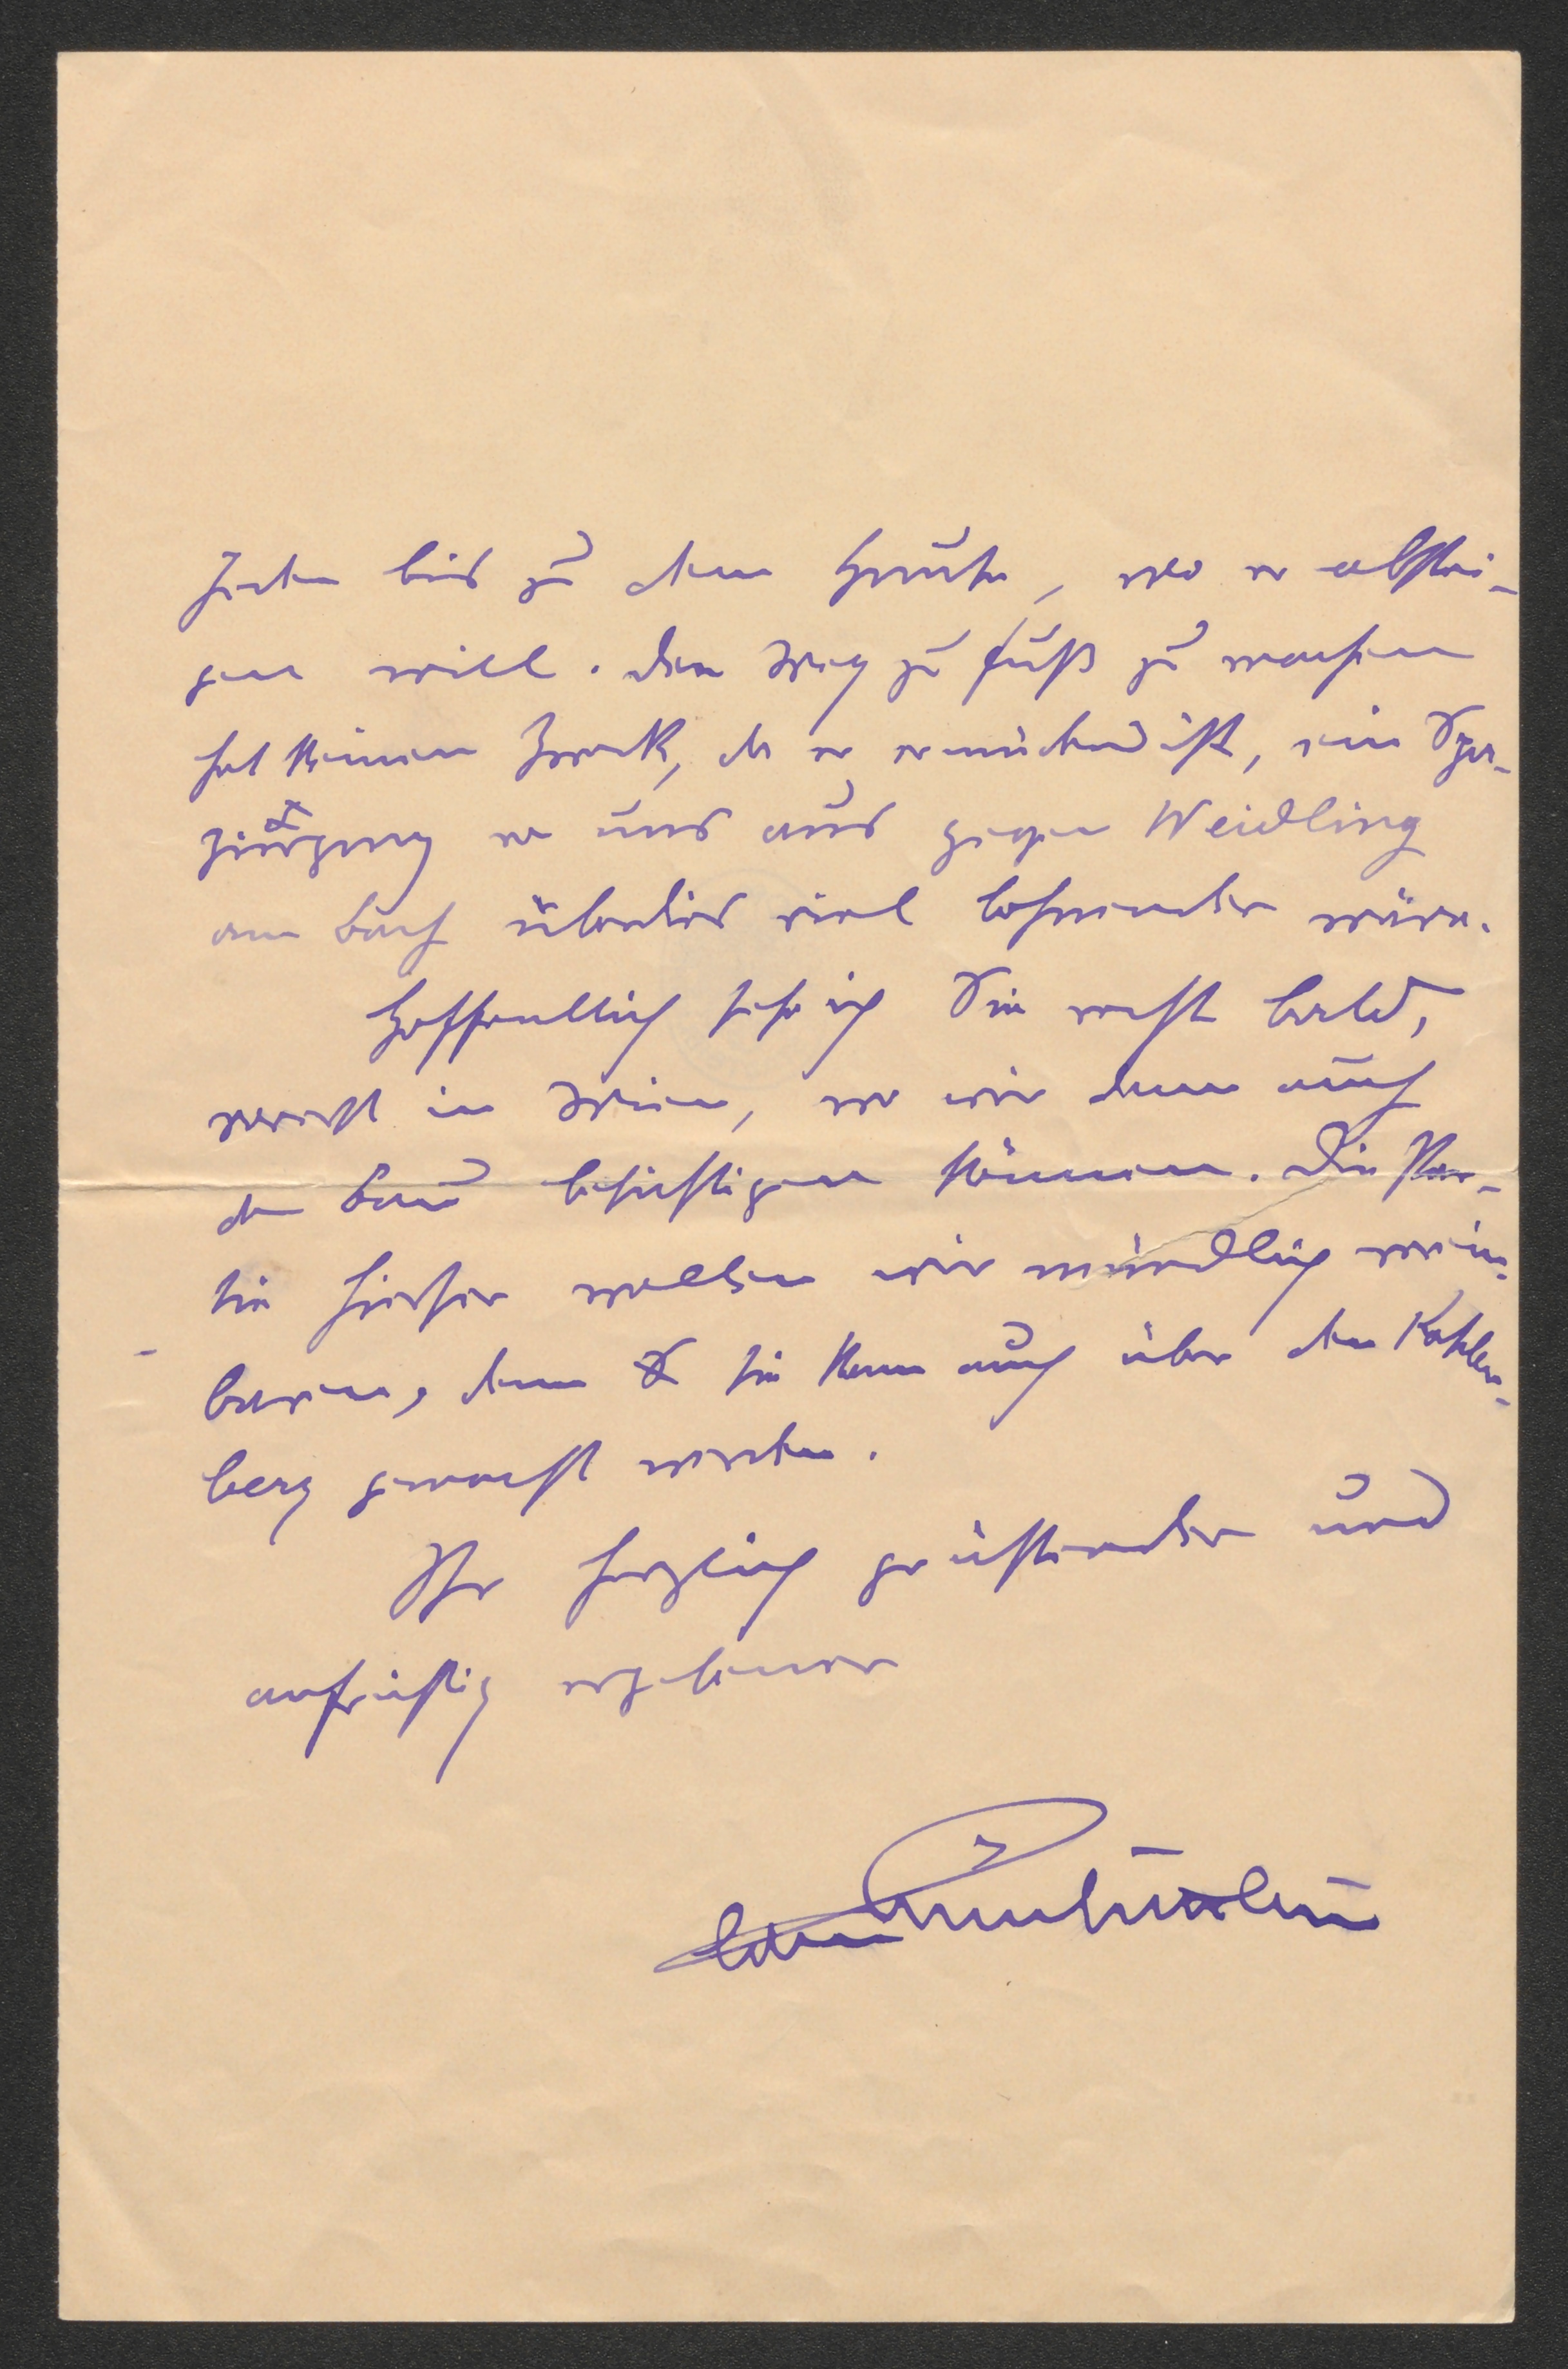 jeden bis zu dem Hause, wo er abstei-
gen will. Den Weg zu Fuß zu machen
hat keinen Zweck, da er ermüdend ist, ein Spa-
ziergang von uns aus gegen Weidling
am Bach überdies viel lohnender wäre.
Hoffentlich sehe ich Sie recht bald,
vorerst in Wien, wo wir dann auch
den Bau besichtigen können. Die Par-
tie hierher wollen wir mündlich verein-
baren, denn sie kann auch über den Kahlen-
berg gemacht werden.
Ihr herzlich grüßender und
aufrichtig ergebener